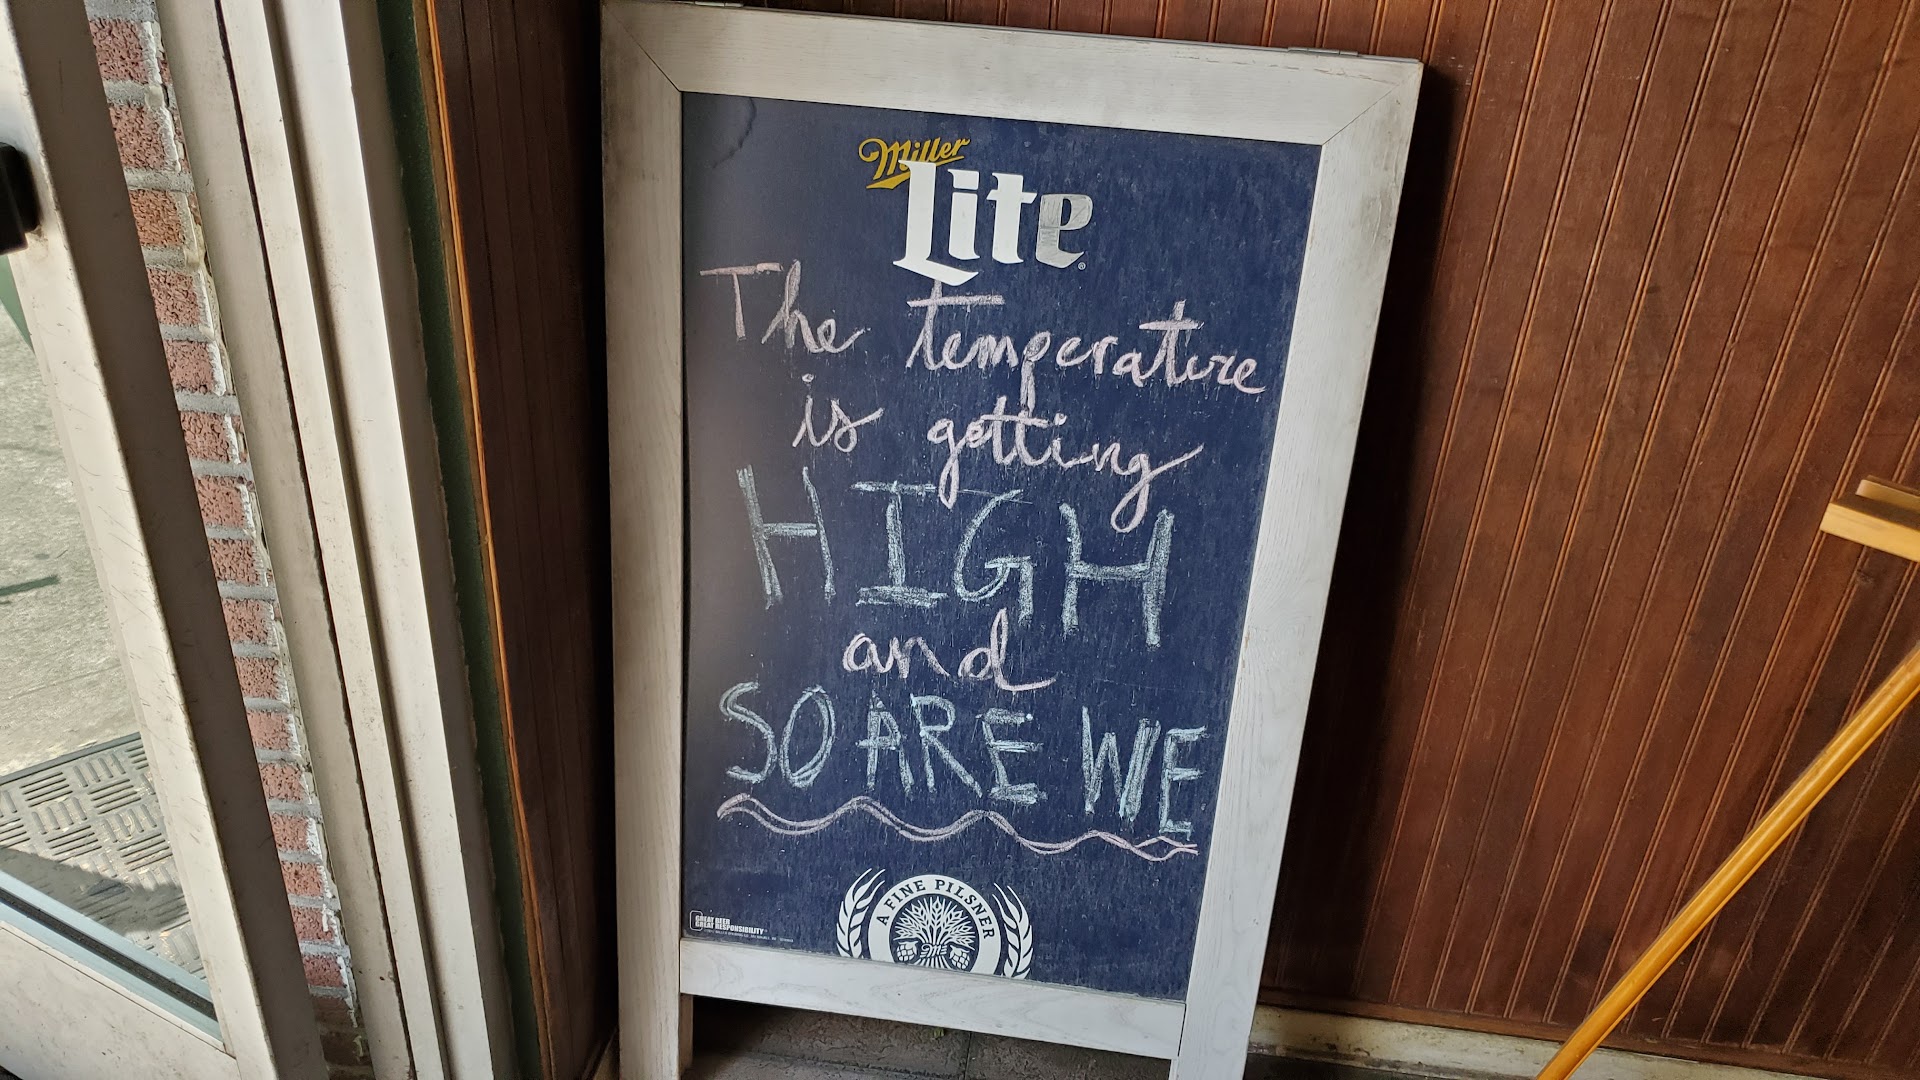 Miller
Lite
The temperature
is getting
HIGH
and
SO ARE WE
A FINE PILSNER
GREAT BEER
GREAT RESPONSIBILITY